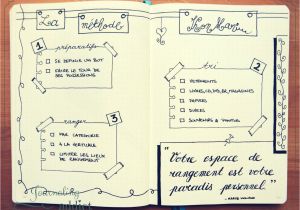 La méthode
1
préparatifs
SE DÉFINIR UN BUT
FAIRE LE TOUR DE
SES POSSESSIONS
3
ranger
PAR CATÉGORIE
À LA VERTICALE
UTILISER LES LIEUX
DE RANGEMENT
Journaling
addict
KonMari
2
tri
VETEMENTS
LIVRES, COURS, MAGAZINES
PAPIERS
DIVERS
SOUVENIRS & PHOTOS
"Votre espace de
rangement est votre
paradis personnel."
- MARIE KONDO